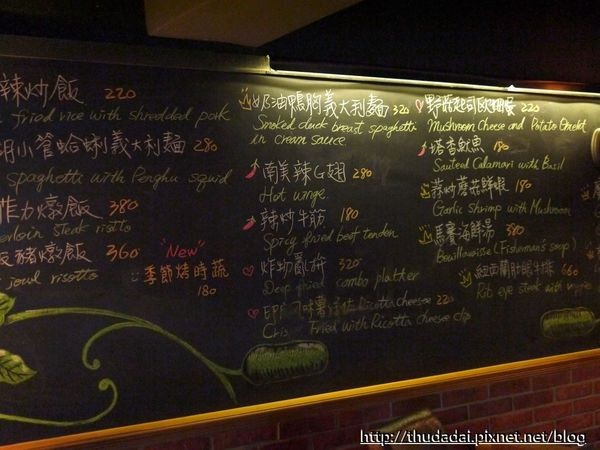 辣炒飯 220
fried rice with shredded pork
小管蛤蜊義大利麵 280
spaghetti with Penghu squid
菲力燉飯 380
steak risotto
豬燉飯 360
jowl risotto
"New"
季節烤時蔬
180
奶油鴨胸義大利麵 320
Smoked duck breast spaghetti
in cream sauce
南美辣G翅 280
Hot wings
辣炒牛筋 180
Spicy fried beef tendon
炸物拼 320
Deep fried combo platter
Ricotta cheese 220
Fried with Ricotta cheese dip
野菇起司歐姆蛋 220
Mushroom Cheese and Potato Omelet
塔香魷魚 180
Sauteed Calamari with Basil
蒜炒蘑菇鮮蝦 180
Garlic shrimp with Mushroom
馬賽海鮮湯 380
Bouillavaisse (Fisherman's soup)
紐西蘭肋眼牛排 660
Rib eye steak with veggies
http://thudadai.pixnet.net/blog